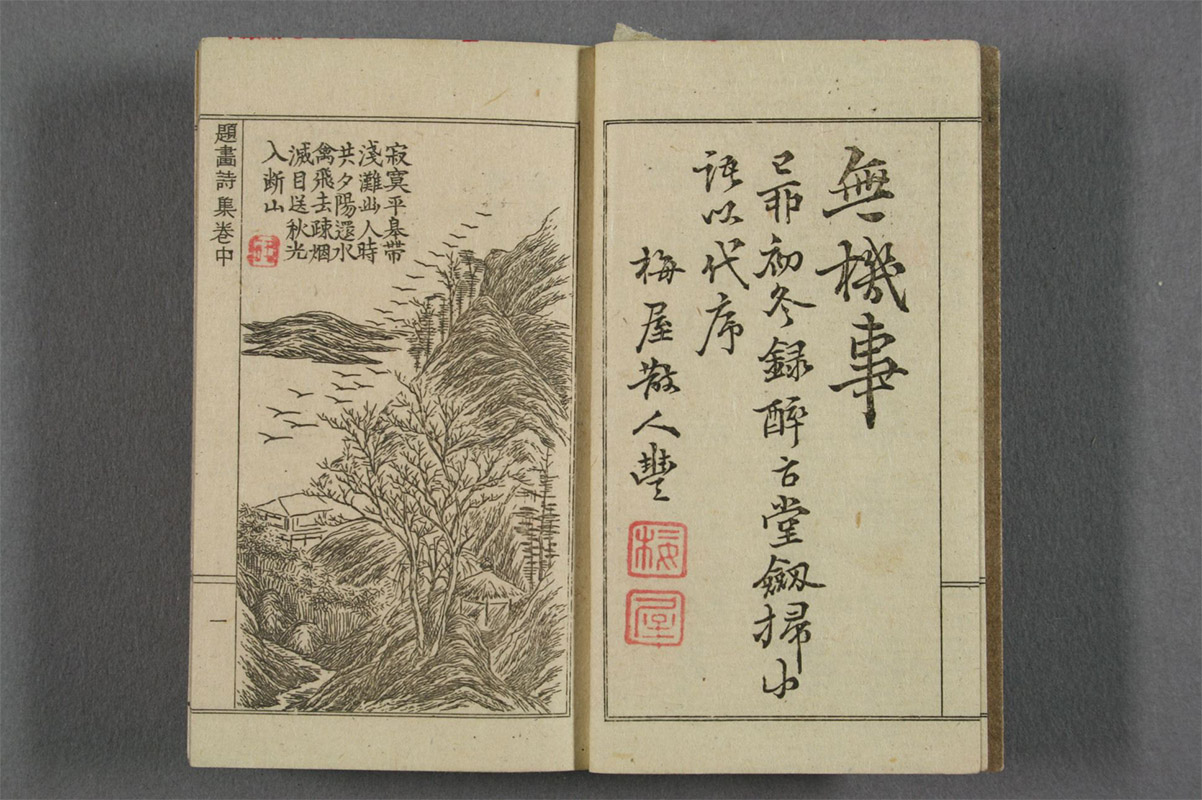 無機事
己卯初冬録酔古堂劔掃中
語以代序
梅屋散人豐
梅
屋
寂寞平皋帶
淺灘幽人時
共夕陽還水
禽飛去疎烟
滅目送秋光
入断山
題畫詩集卷中
一